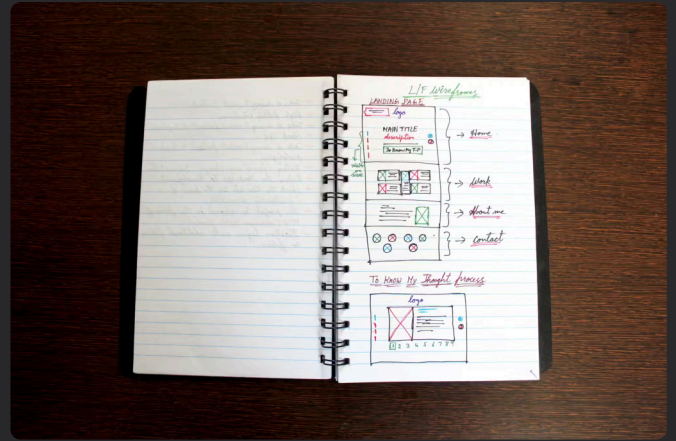 L/F Wireframes
LANDING PAGE
logo
MAIN TITLE
description
To Know My T.P
Home
Work
About me
Contact
To Know My Thought Process
logo
1 2 3 4 5 6 7 8 9